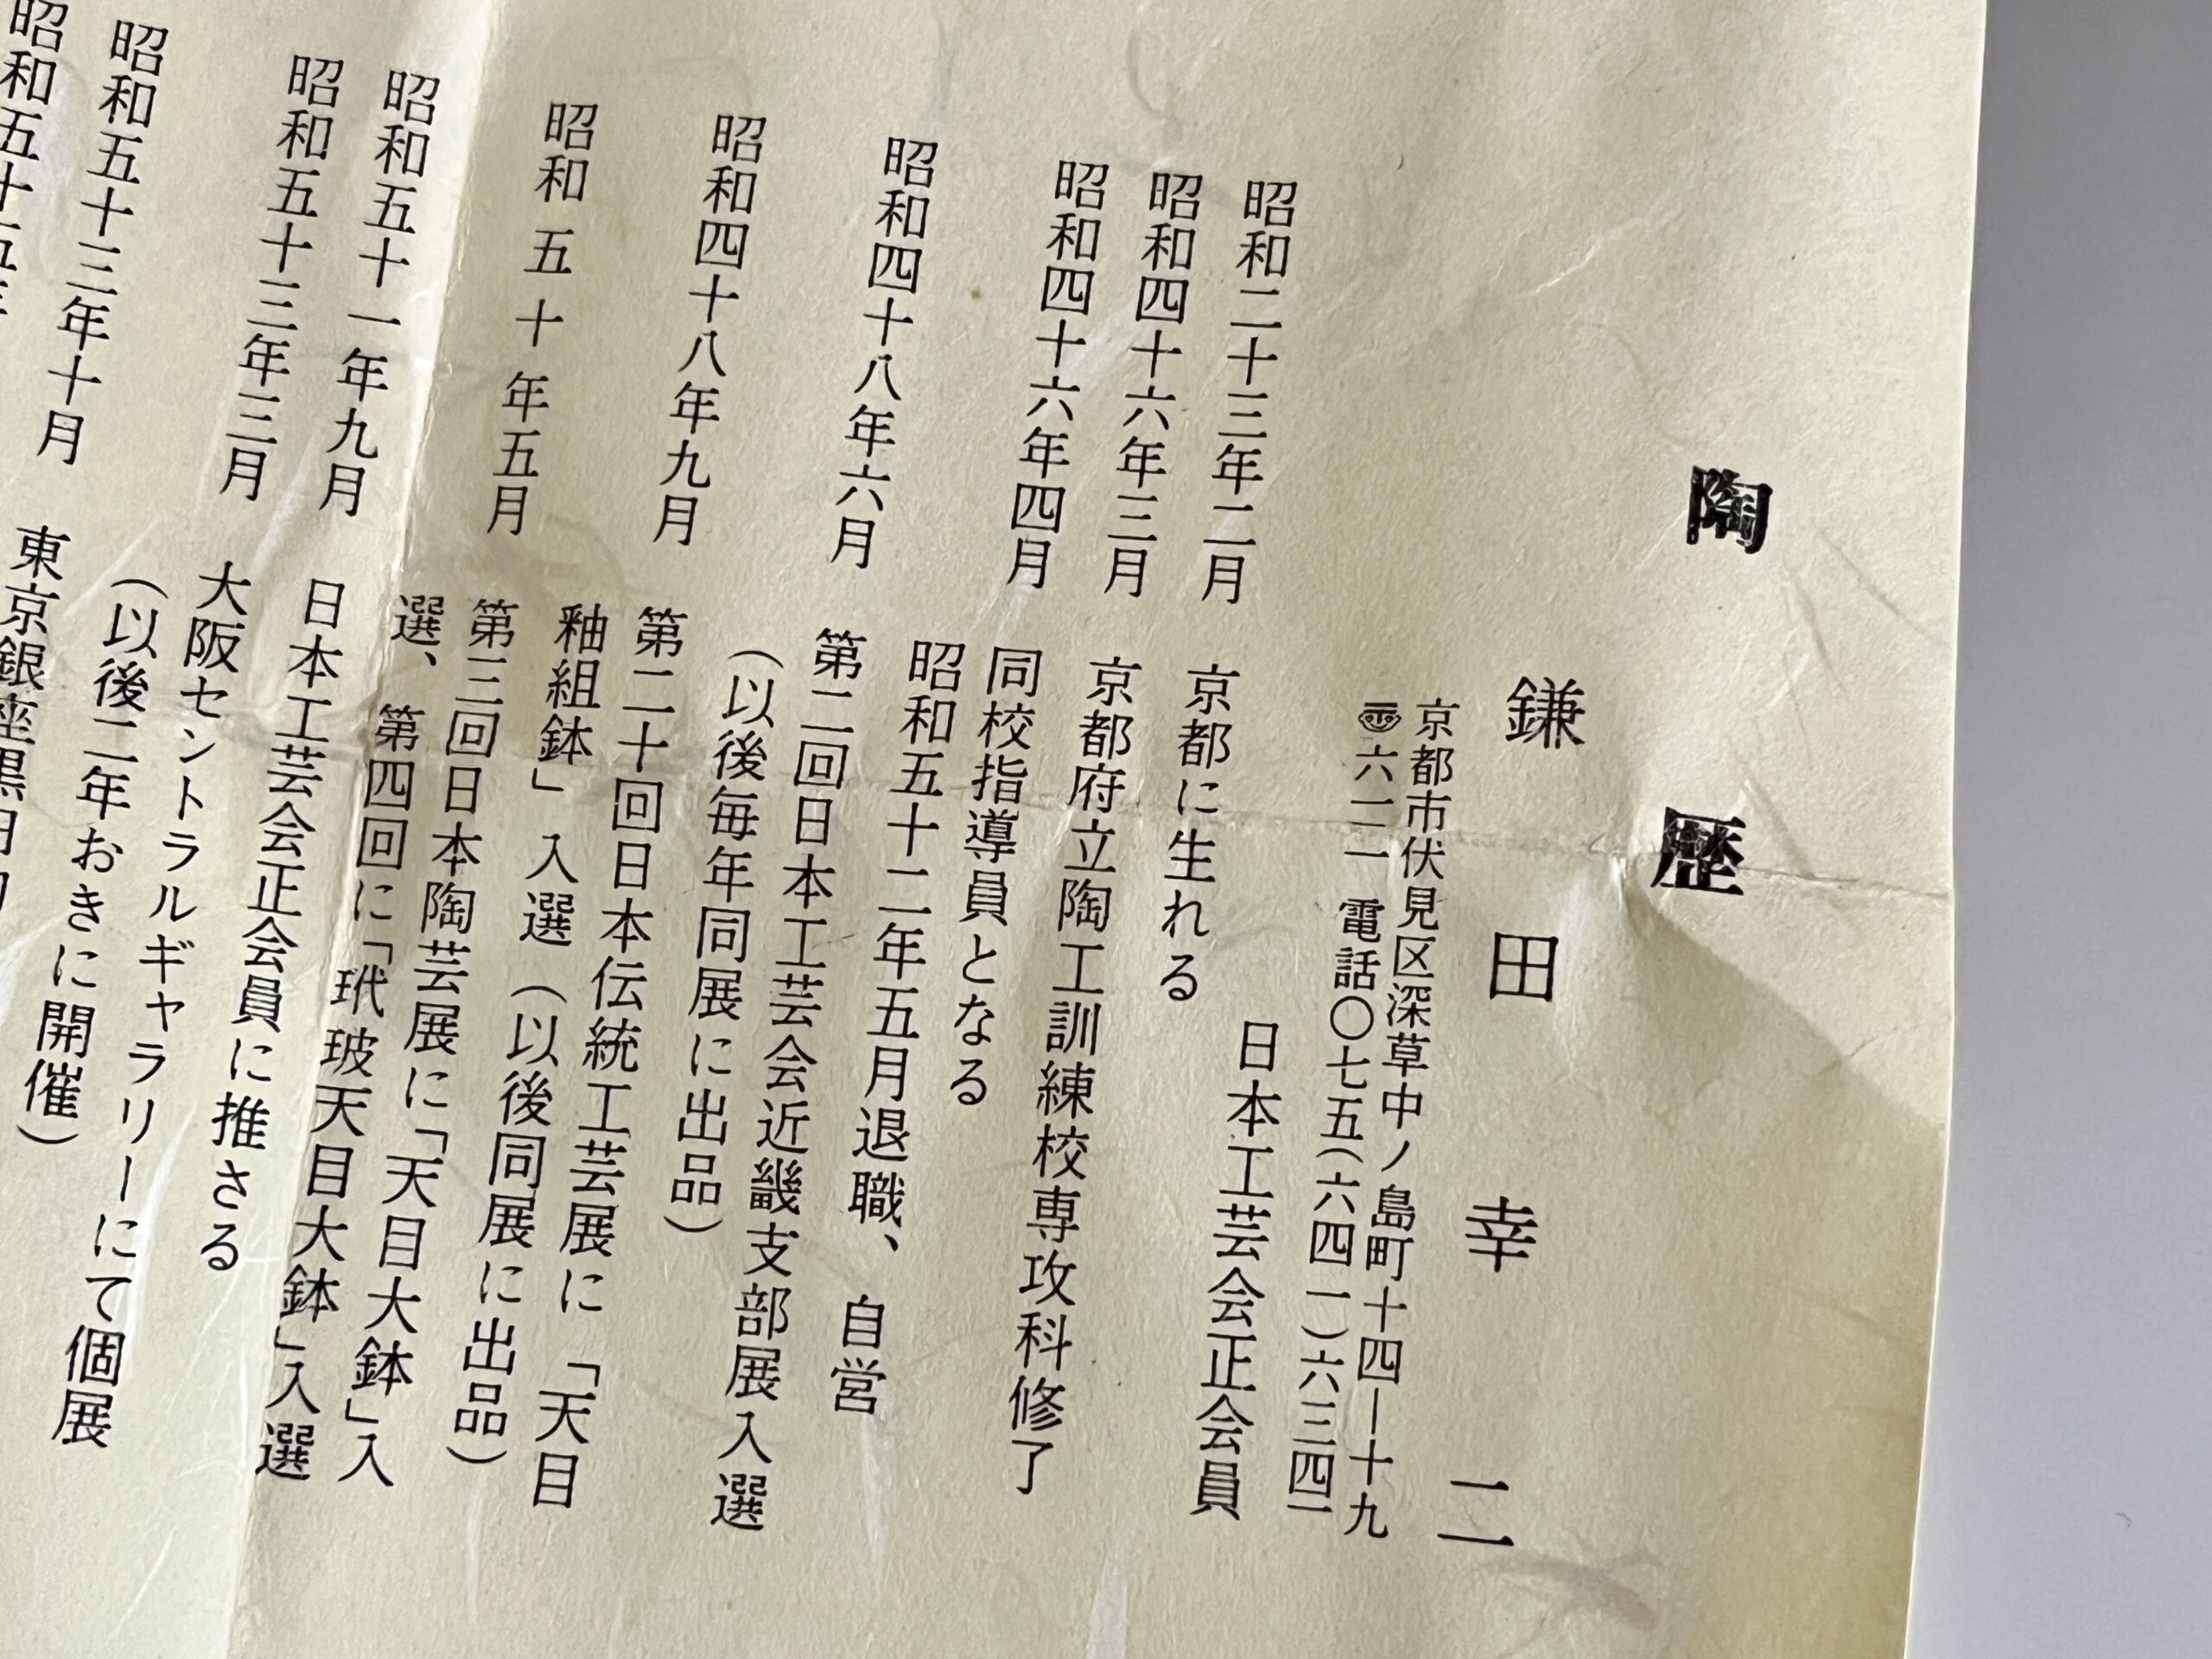 陶歴
鎌田幸二
京都市伏見区深草中ノ島町十四―十九
〠六一二 電話〇七五(六四一)六三四一
日本工芸会正会員
昭和二十三年二月 京都に生れる
昭和四十六年三月 京都府立陶工訓練校専攻科修了
昭和四十六年四月 同校指導員となる
昭和五十二年五月退職、自営
昭和四十八年六月 第二回日本工芸会近畿支部展入選
(以後毎年同展に出品)
昭和四十八年九月 第二十回日本伝統工芸展に「天目
釉組鉢」入選(以後同展に出品)
昭和五十年五月 第三回日本陶芸展に「天目大鉢」入
選、第四回に「玳玻天目大鉢」入選
昭和五十一年九月 日本工芸会正会員に推さる
昭和五十三年三月 大阪セントラルギャラリーにて個展
(以後二年おきに開催)
昭和五十三年十月 東京銀座黒田
昭和五十五年